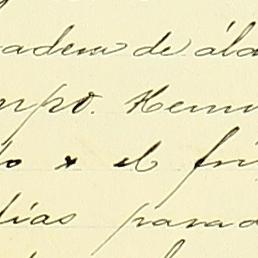 adera de ála
mpo. Hemo
lo y el frí
días para